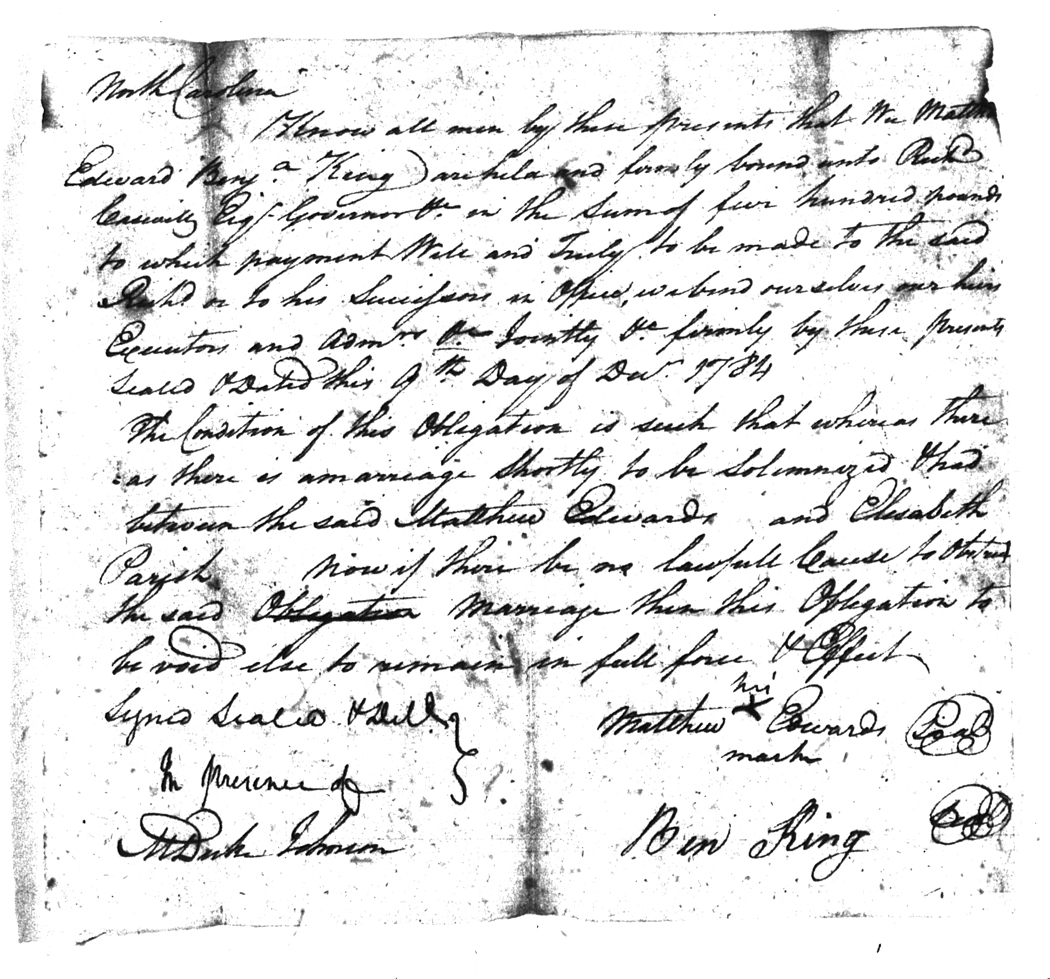 North Carolina
Know all men by these presents that We Matthew
Edward Benj.a King are held and firmly bound unto Richd
Caswell Esqr. Governor &c in the Sum of five hundred pounds
to which payment Well and Truly to be made to the said
Richd or to his Successors in Office, we bind ourselves our heirs
Executors and Admrs &c Jointly &c firmly by these presents
Sealed & Dated this 9th Day of Decr 1784
The Condition of this Obligation is such that whereas there
as there is a marriage Shortly to be Solemnized & had
between the said Matthew Edwards and Elisabeth
Parish Now if there be no lawfull Cause to Obstruct
the said Obligation Marriage then this Obligation to
be void else to remain in full force & Effect
Signed Sealed & Delld
In presence of
M Duke Johnson
his
Matthew X Edwards Seal
mark
Ben King Seal